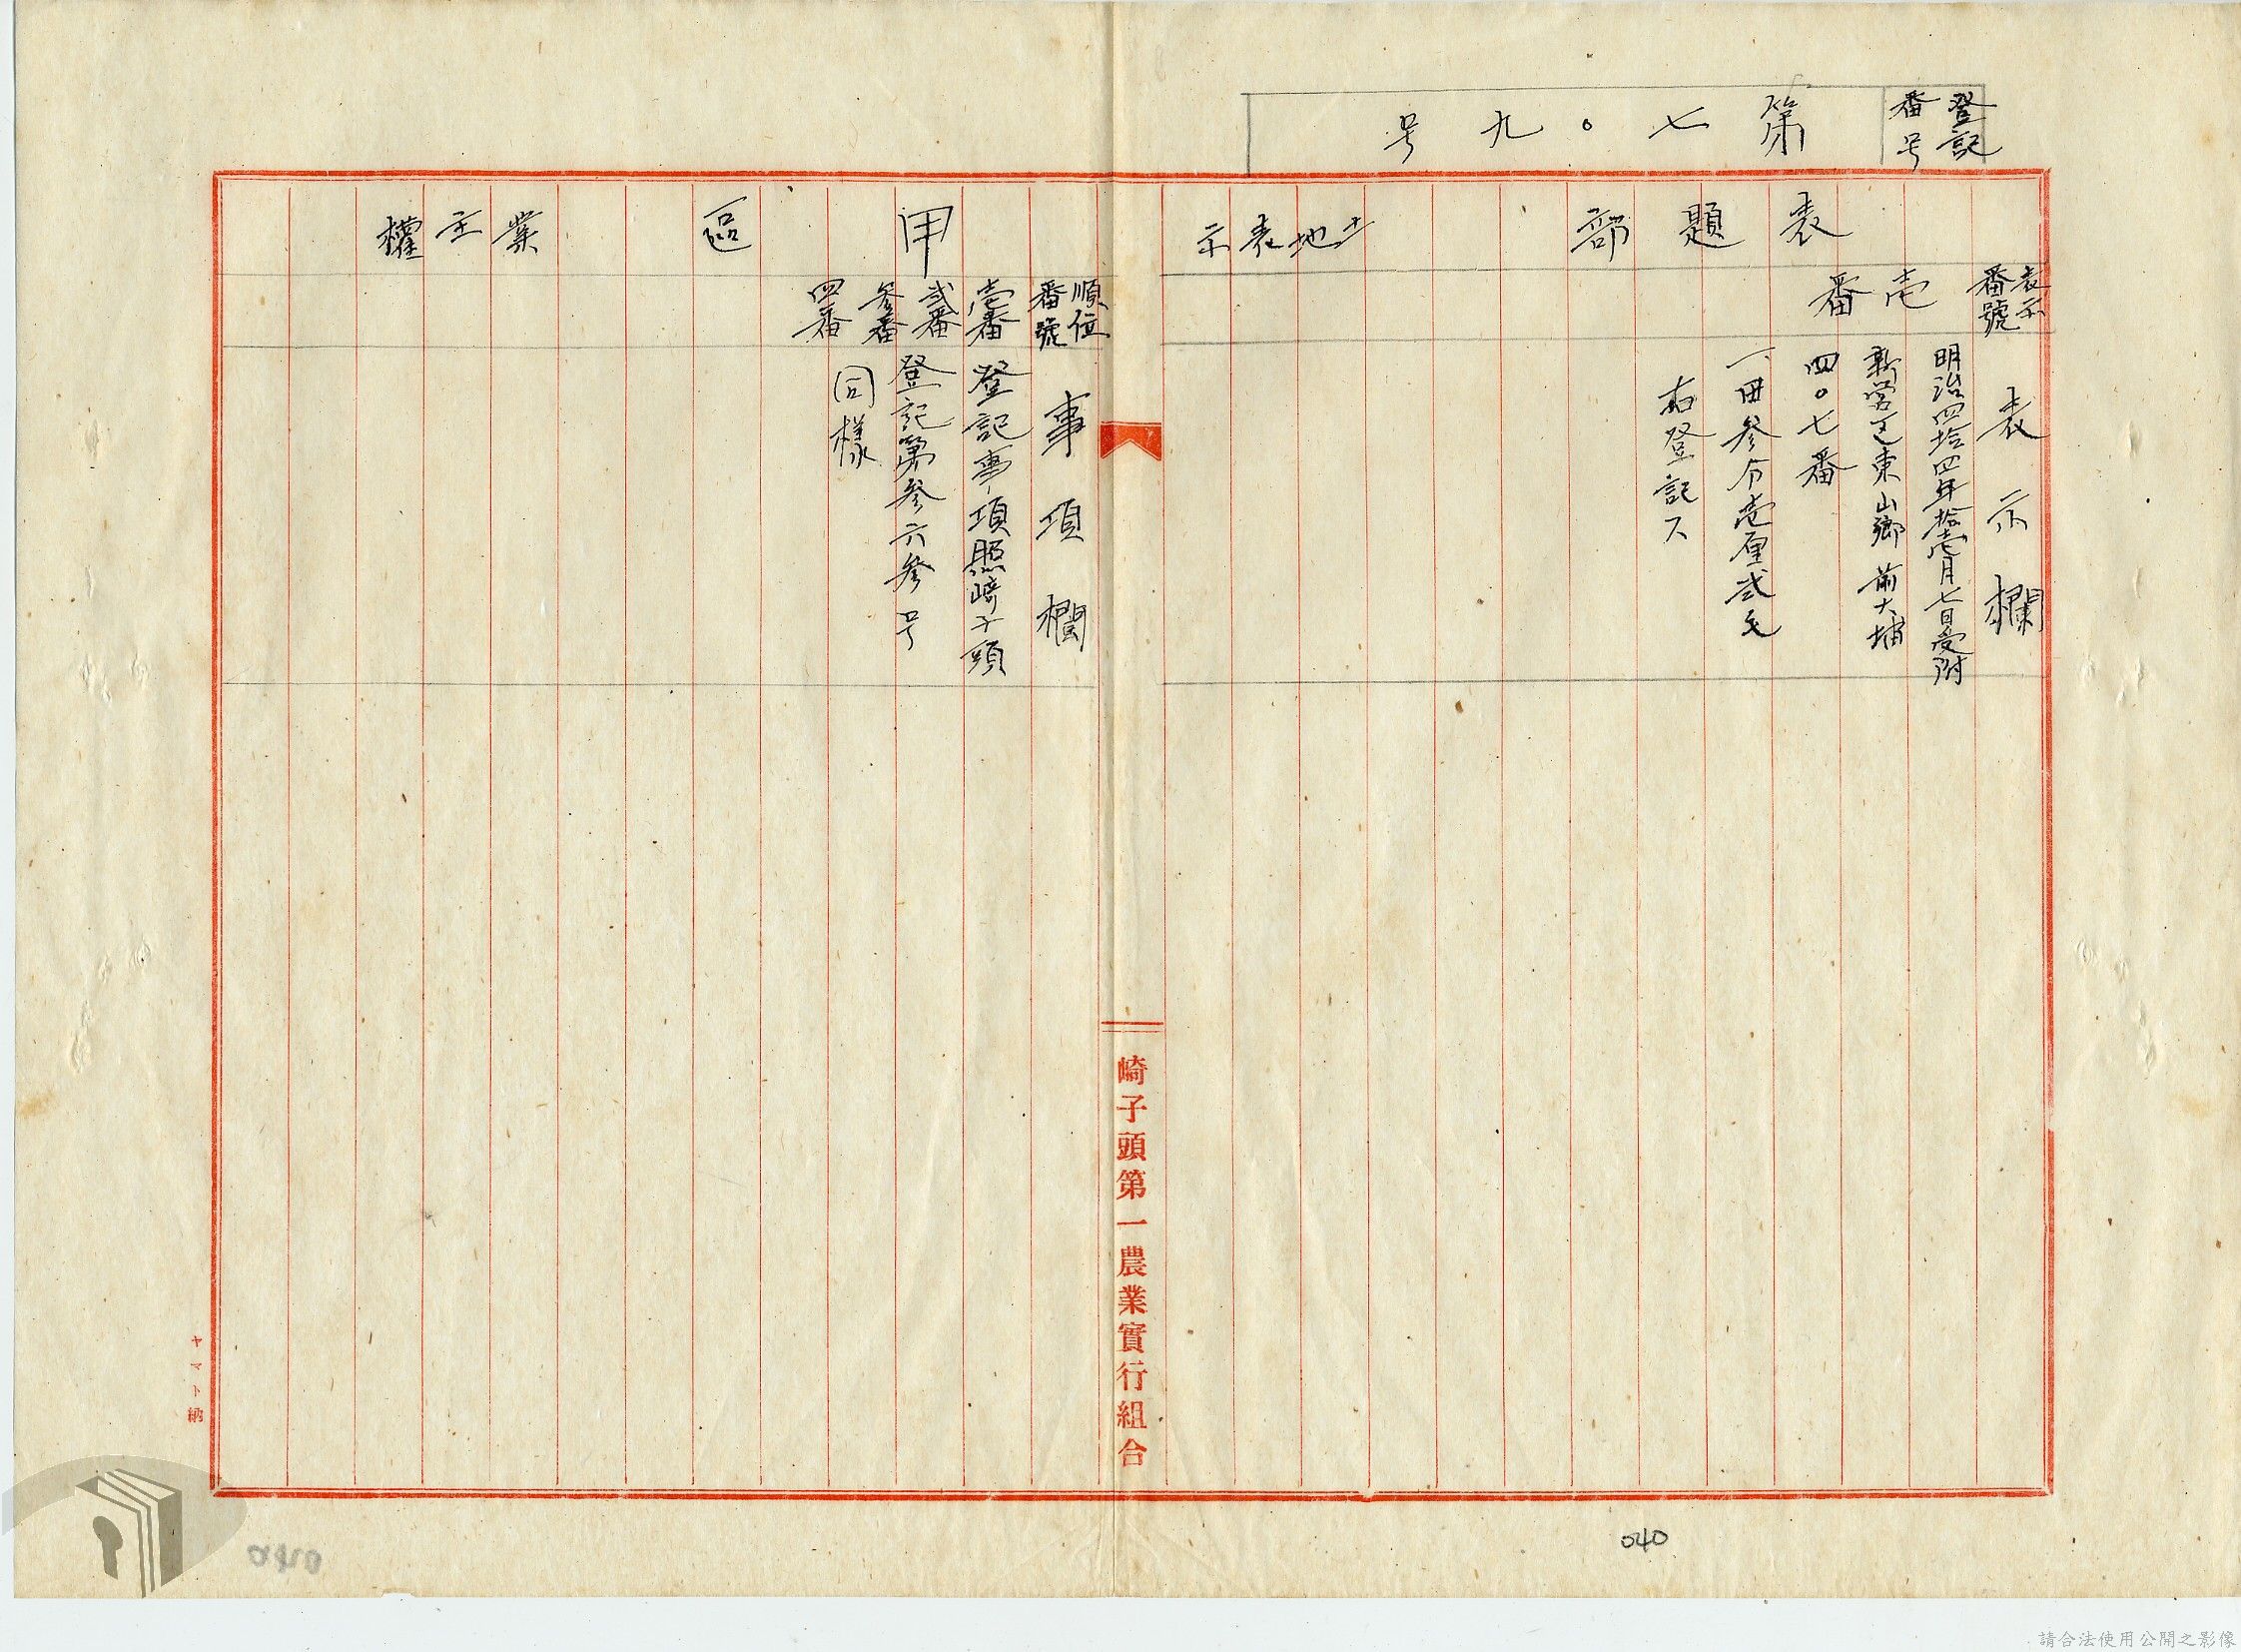 登記
番号
第七〇九号
表題部
土地表示
表示
番號
壱番
表示欄
明治四拾四年拾壱月七日受附
新営区東山郷前大埔
四〇七番
一、田参分壱厘弐毛
右登記ス
甲區
業主權
順位
番號
壱番
弐番
参番
四番
事項欄
登記事項照崎子頭
登記第参六参号
同様
崎子頭第一農業實行組合
ヤマト納
040
請合法使用公開之影像